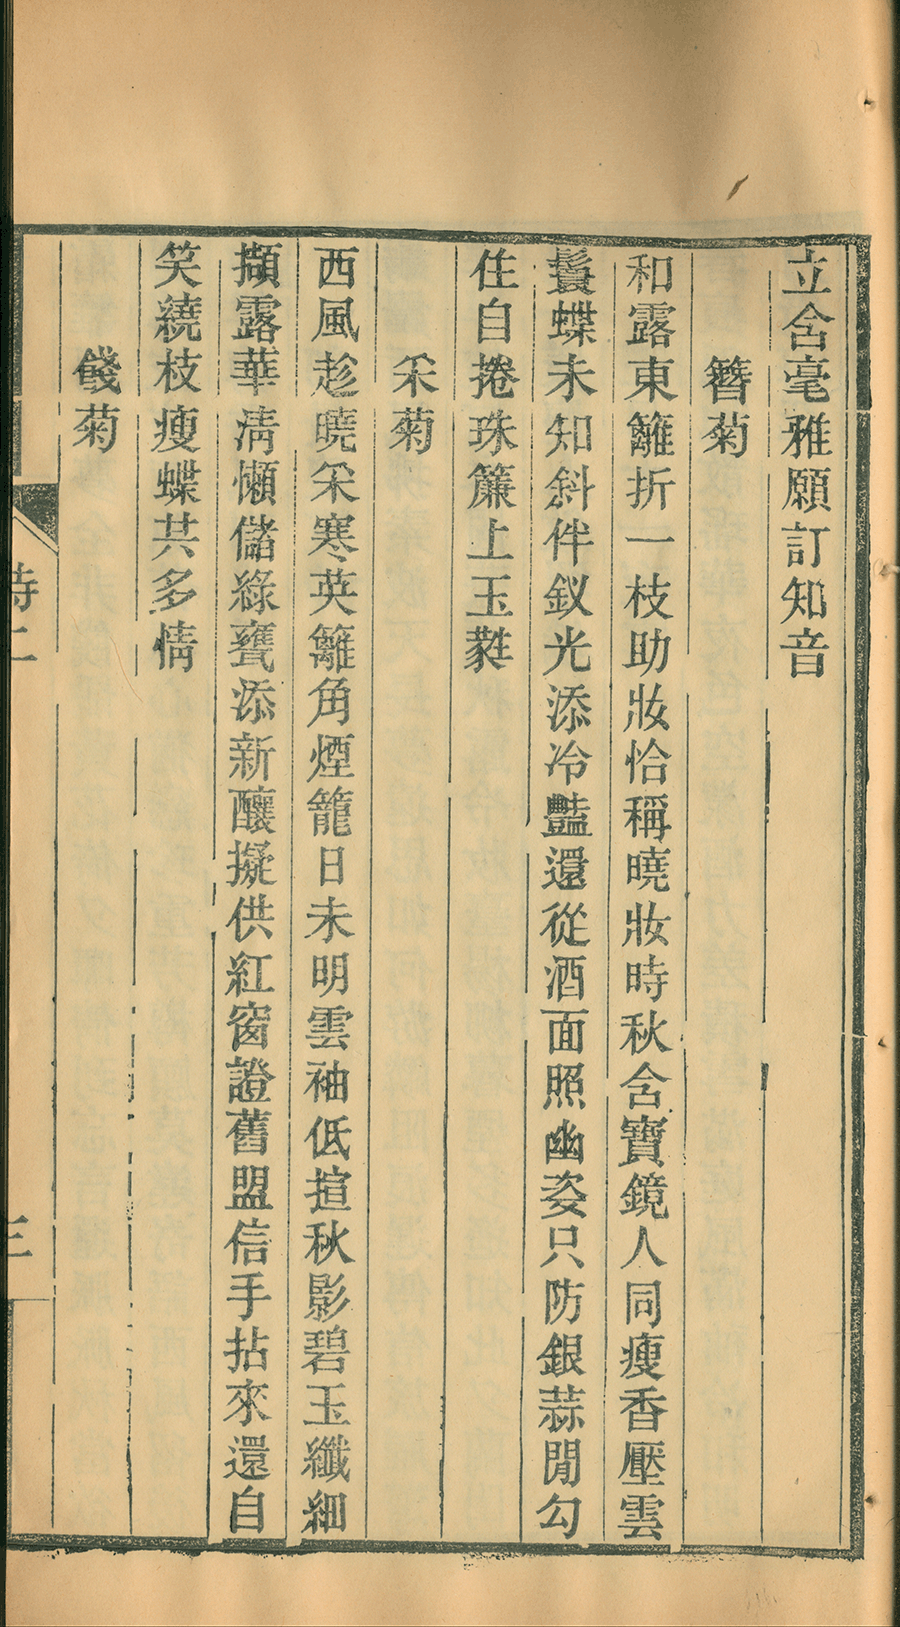 立含毫雅願訂知音
簪菊
和露東籬折一枝助妝恰稱曉妝時秋含寶鏡人同瘦香壓雲
鬟蝶未知斜伴釵光添冷豔還從酒面照幽姿只防銀蒜閒勾
住自捲珠簾上玉㲪
采菊
西風趁曉采寒英籬角煙籠日未明雲袖低揎秋影碧玉纖細
擷露華淸懶儲綠甕添新釀擬供紅窗證舊盟信手拈來還自
笑繞枝瘦蝶共多情
餞菊
詩二
三